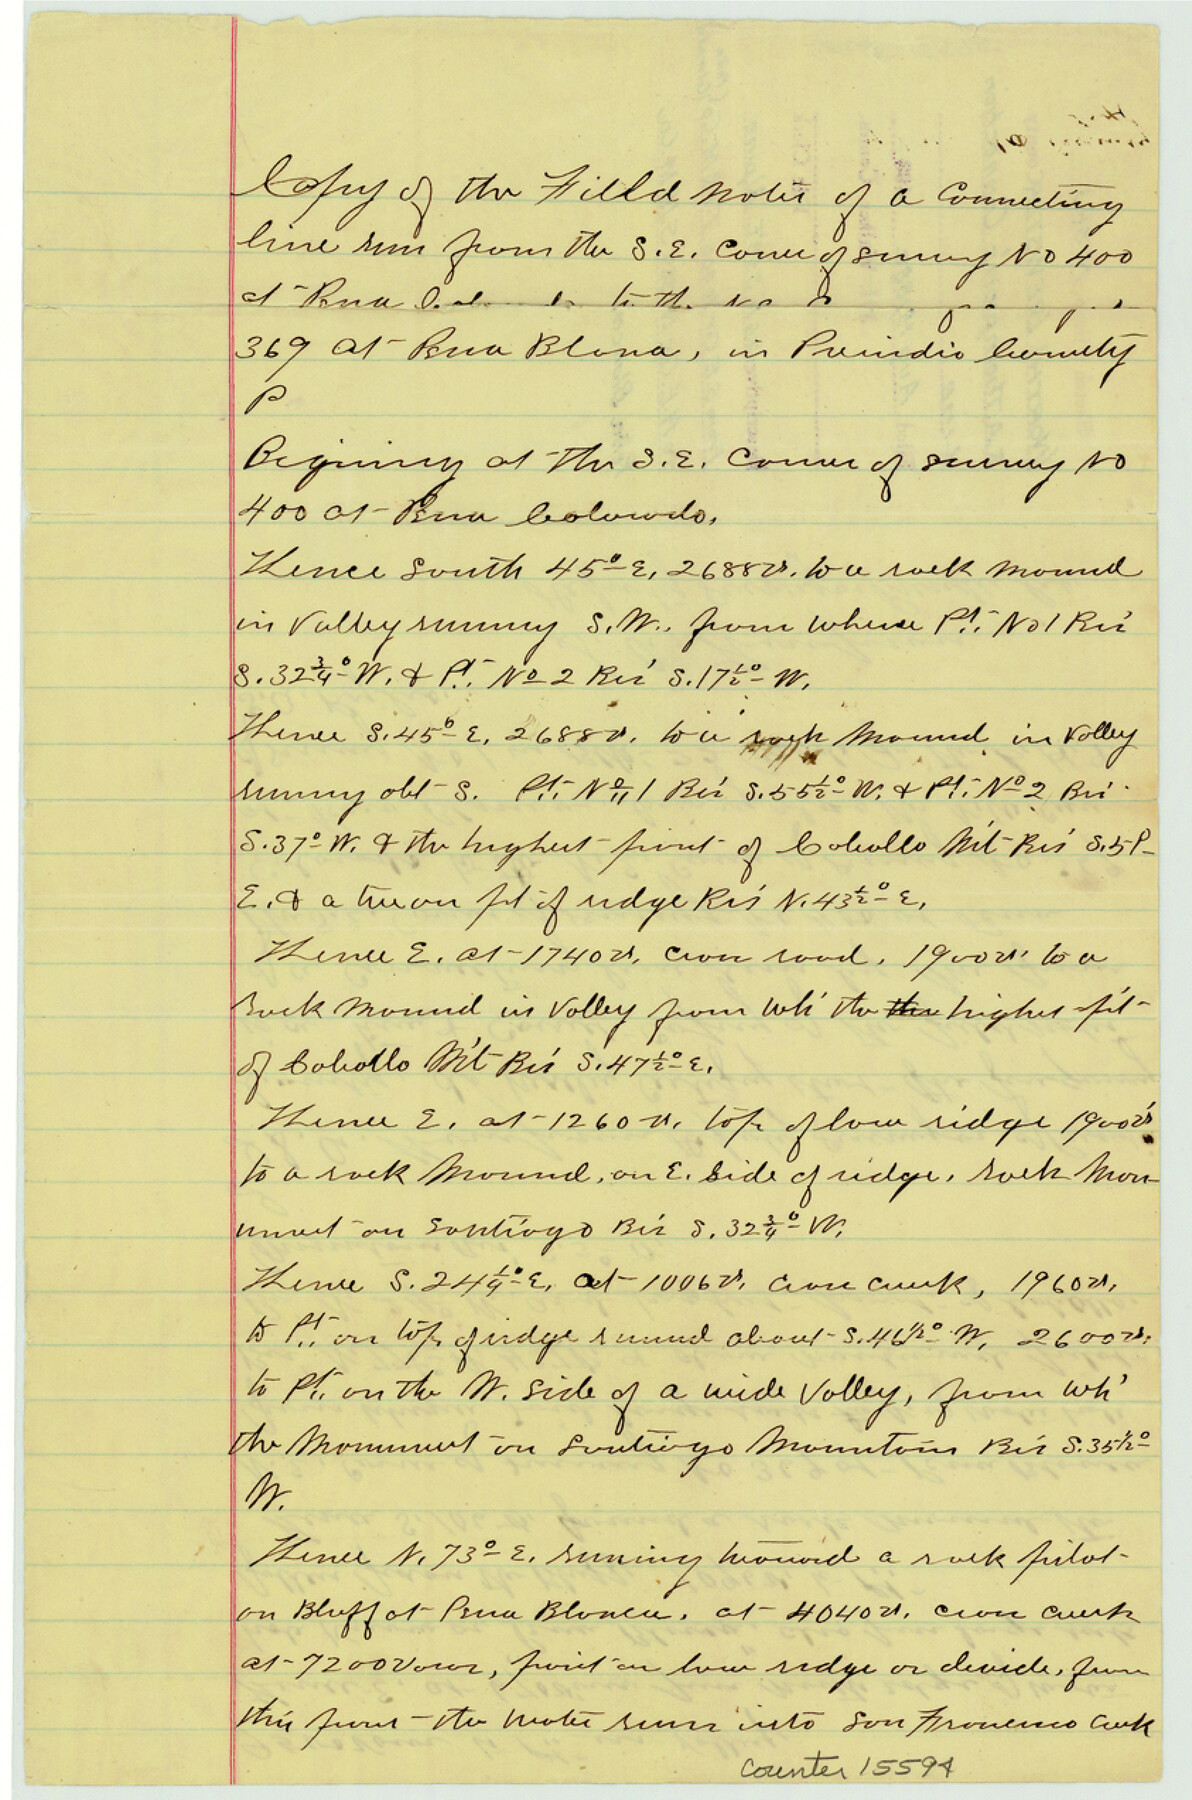 Copy of the Field notes of a Connecting
line run from the S.E. Corner of survey No 400
at Pena to the
369 at Pena Blanca, in Presidio County
Begining at the S.E. Corner of survey No
400 at Pena Colorado.
Thence South 45° E, 2688 vs. to a rock mound
in Valley runing S.W. from where Pt. No 1 Brs
S. 32¾° W. & Pt. No 2 Brs S. 17½° W.
Thence S. 45° E, 2688 vs. to a rock Mound in Valley
runing abt S. Pt. No 1 Brs S. 55½° W. & Pt. No 2 Brs
S. 37° W. & the highest point of Caballo Mt Brs S. 51°
E. & a tree on pt of ridge Brs N. 43½° E.
Thence E. at 1740 vs. cross road. 1900 vs to a
rock Mound in Valley from wh' the the highest pt
of Caballo Mt Brs S. 47½° E.
Thence E. at 1260 vs. top of low ridge 1900 vs
to a rock Mound, on E. side of ridge. rock Mon-
ument on Santiago Brs S. 32¾° W.
Thence S. 24¼° E. at 1006 vs. cross creek, 1960 vs.
to Pt. on top of ridge runing about S. 46½° W. 2600 vs.
to Pt. on the W. side of a wide Valley, from wh'
the Monument on Santiago Mountain Brs S. 35½°
W.
Thence N. 73° E. runing toward a rock pilot
on Bluff at Pena Blanca. at 4040 vs. cross creek
at 7200 varas, point on low ridge or devide, from
this point the water runs into San Francisco Creek
Counter 15594